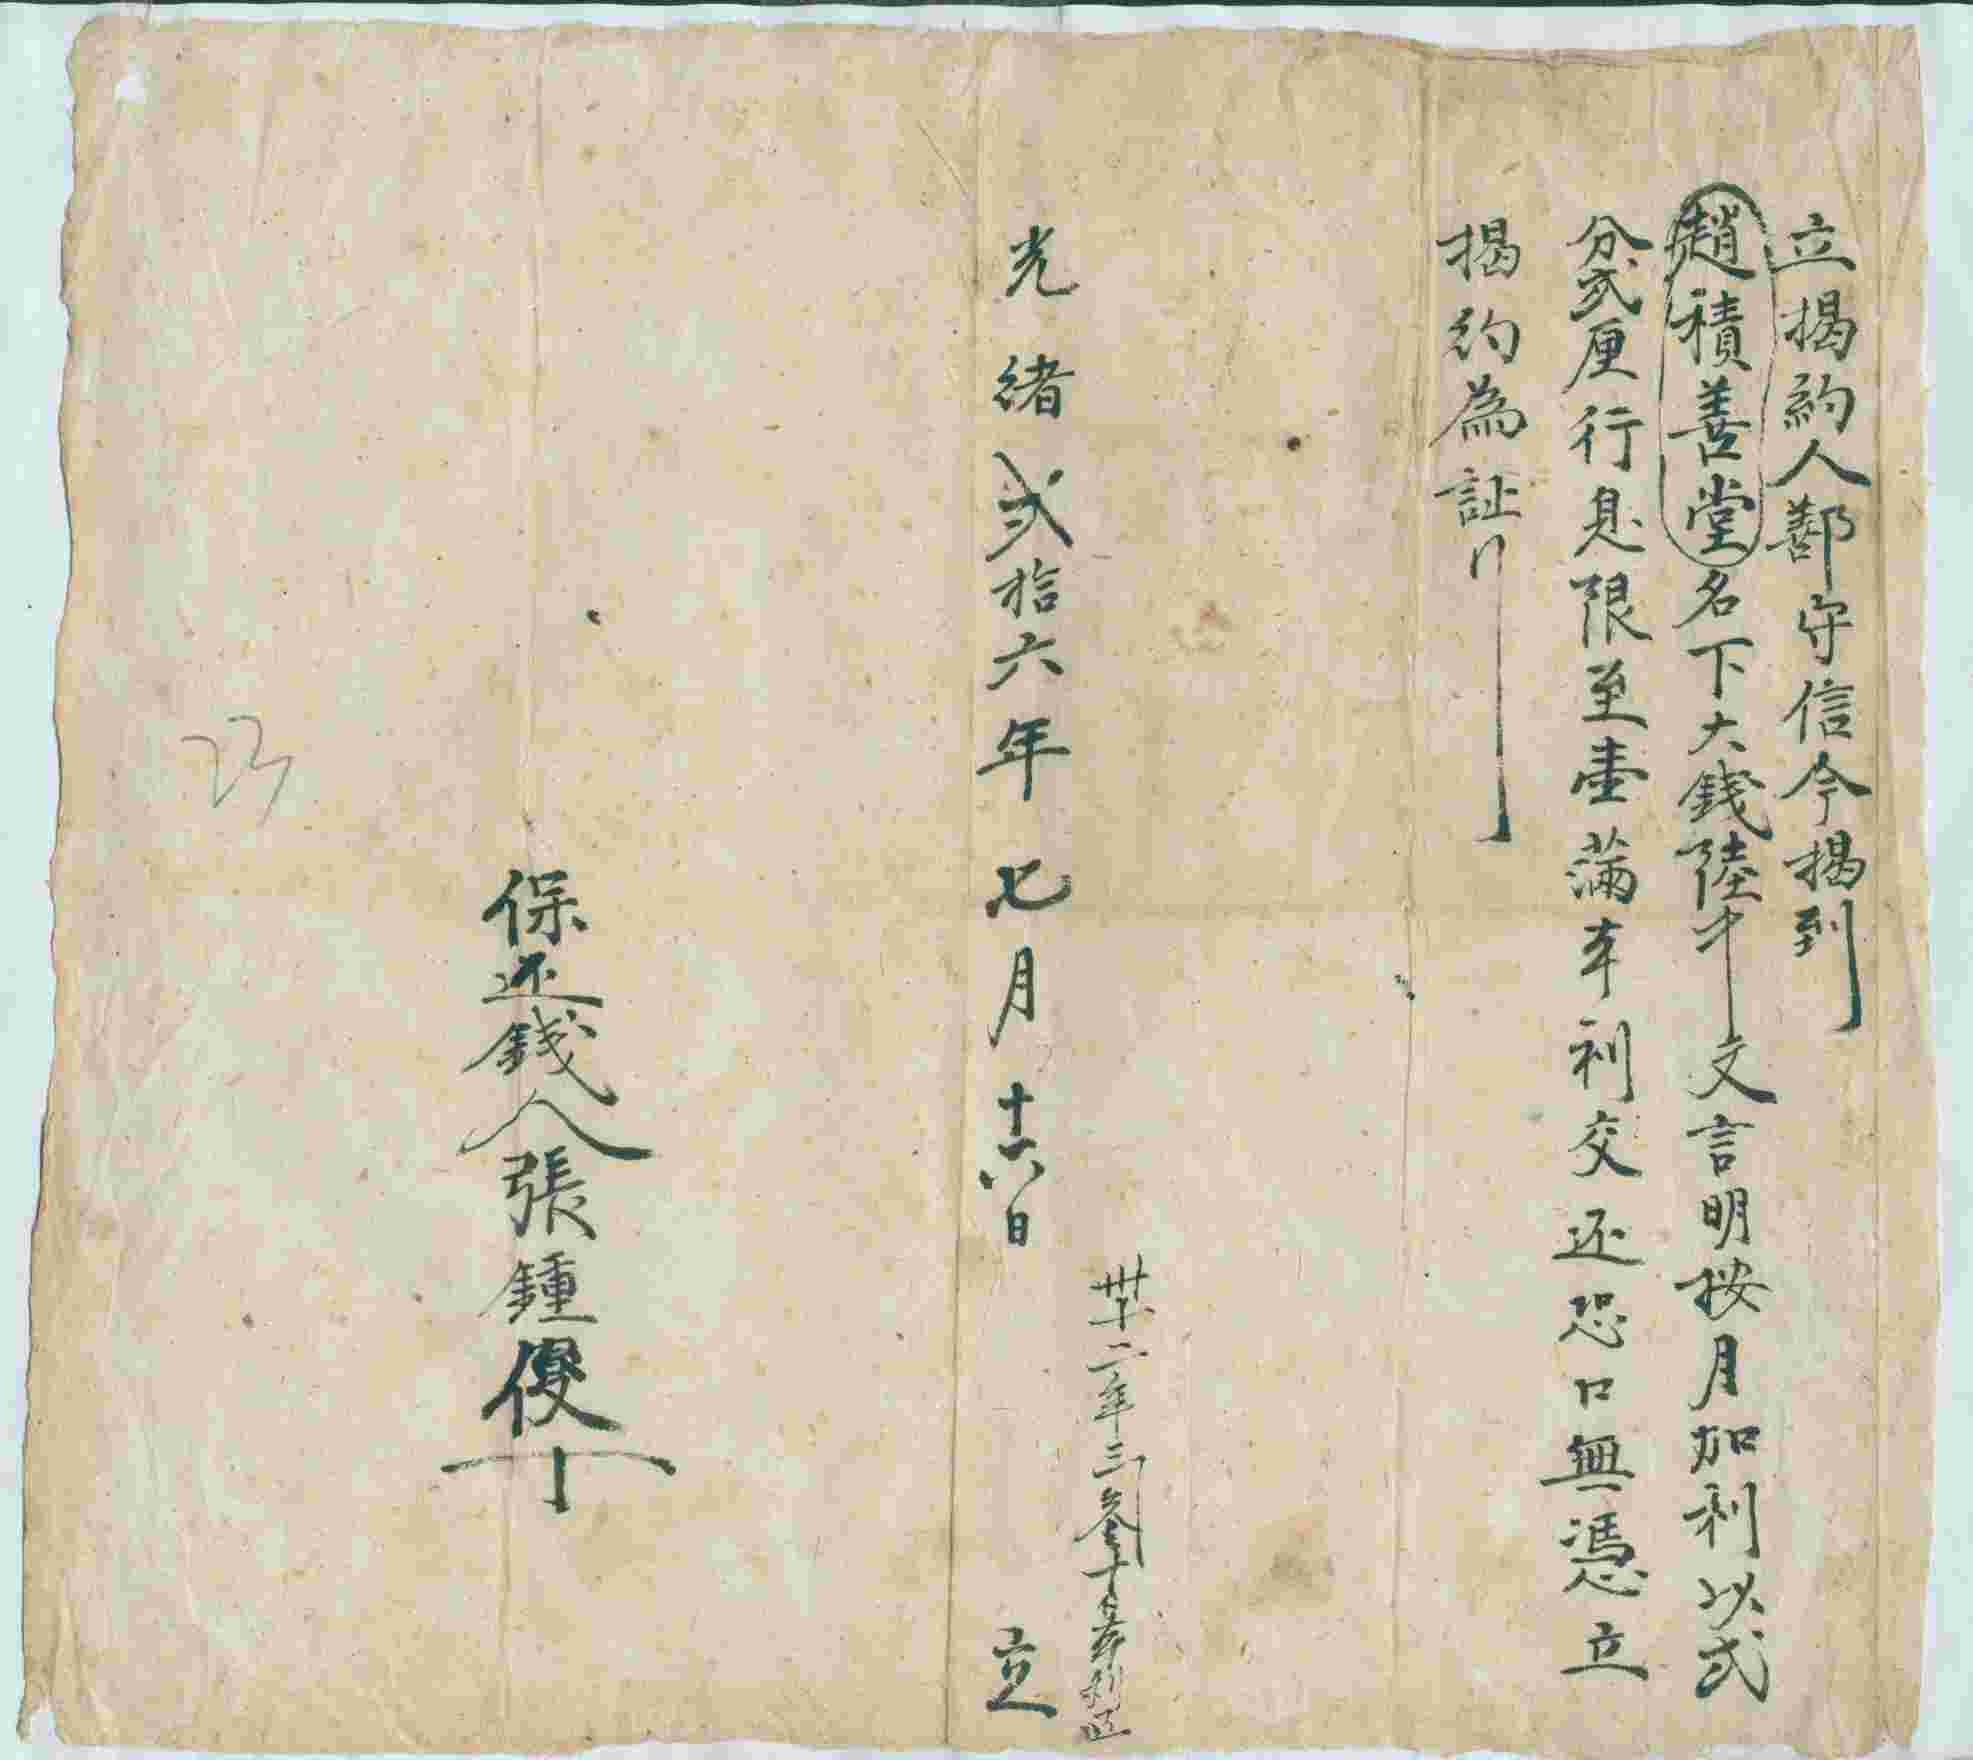 立揭約人鄯守信今揭到
趙積善堂名下大錢陸千文言明按月加利以弍
分弍厘行息限至壹滿本利交还恐口無憑立
揭約為証
年三
光緒弍拾六年七月十六日 立
保还錢人張鍾優十
23